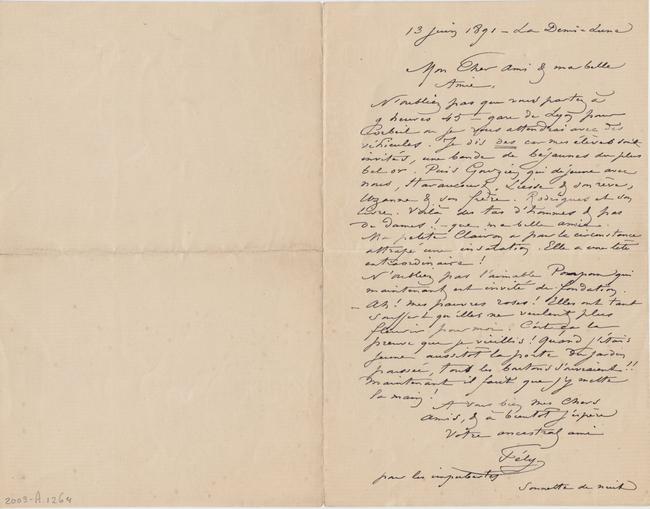 13 juin 1891 - La Demi-Lune
Mon Cher Ami & ma belle
Amie,
N'oubliez pas que vous partez à
9 heures 45 - gare de Lyon pour
Corbeil où je vous attendrai avec des
véhicules. Je dis des car mes élèves sont
invités, une bande de béjaunes du plus
bel or. Puis Gouzien qui déjeune avec
nous, Haraucourt, Liesse & son rêve,
Uzanne & son frère. Rodrigues et son
livre. Voilà des tas d'hommes & pas
de dames! - que ma belle amie.
Ma petite Clairon a par la circonstance
attrapé une insolation. Elle a une tête
extraordinaire!
N'oubliez pas l'aimable Pompon qui
maintenant est invité de fondation.
- Ah! mes pauvres roses! Elles ont tant
souffert qu'elles ne veulent plus
fleurir pour moi. C'est ça la
preuve que je vieillis! Quand j'étais
jeune aussitôt la porte du jardin
passée, tout les boutons s'ouvraient!!
Maintenant il faut que j'y mette
la main!
A vous bien mes Chers
Amis, & à bientôt j'espère
Votre ancestral ami
Fély
pour les impubertes
Sonnette de nuit
2009-A.1264